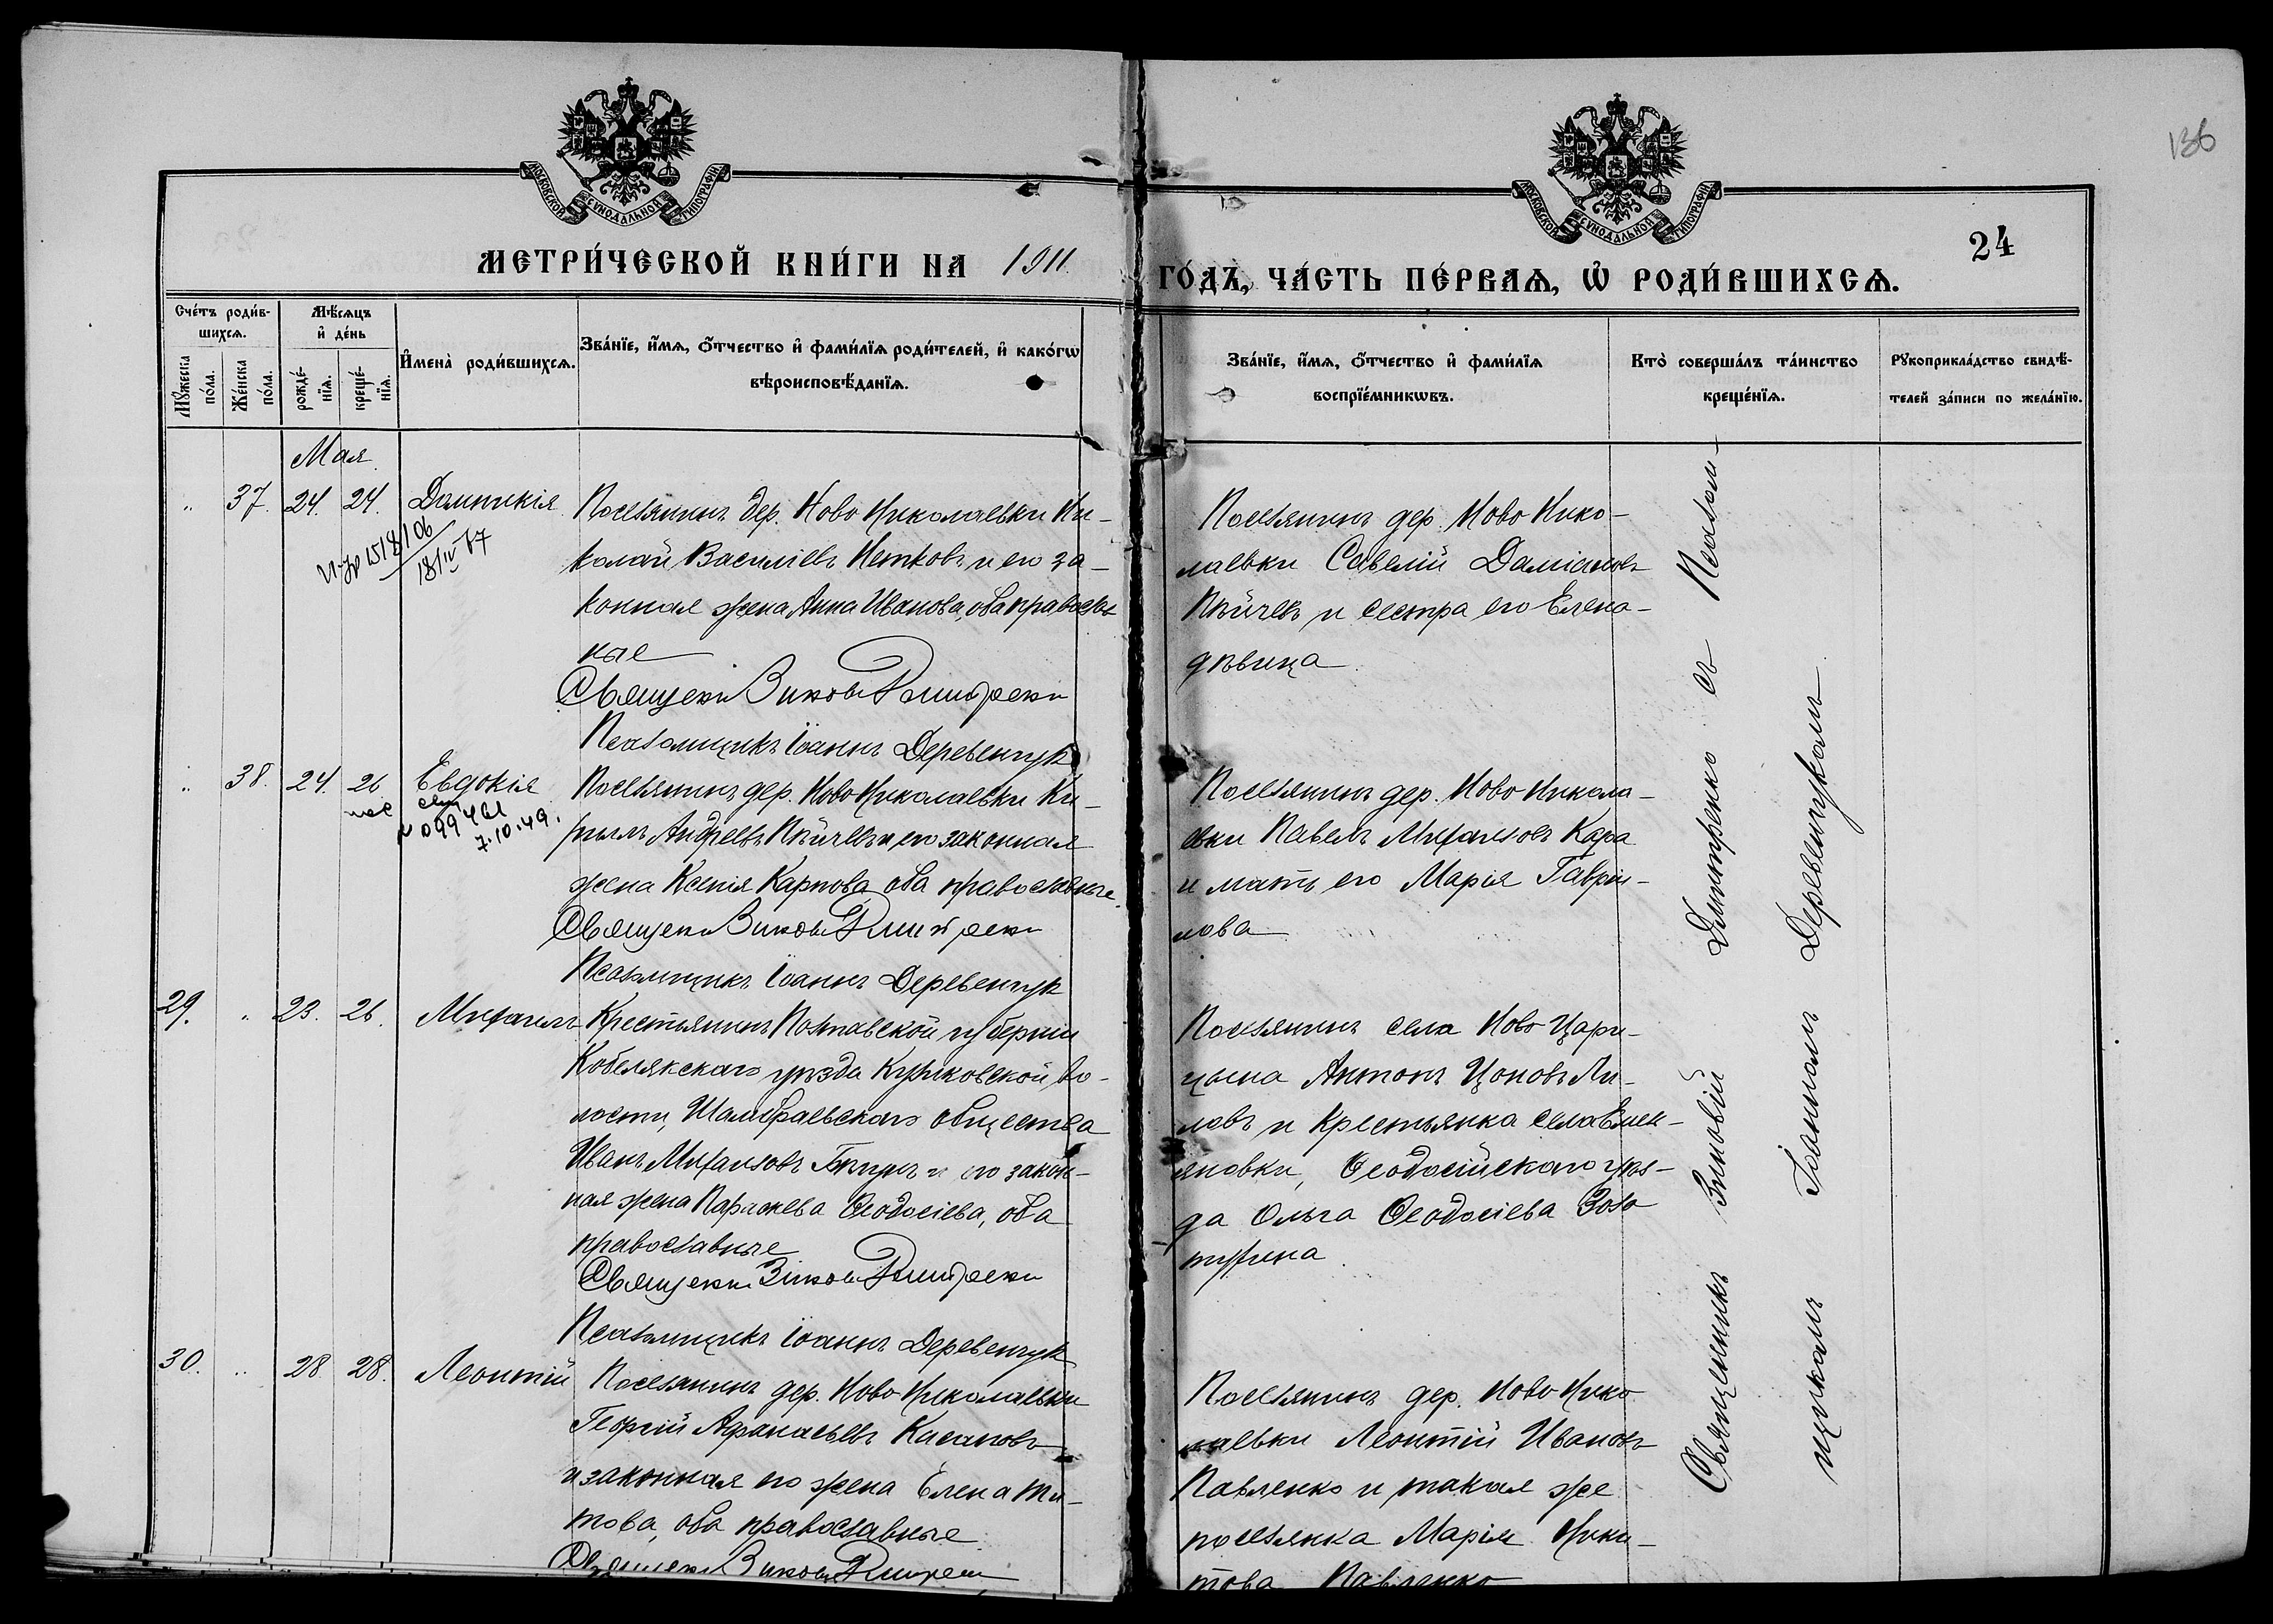 136
МОСКОВСКОЙ СѴНОДАЛЬНОЙ ТИПОГРАФІИ
МОСКОВСКОЙ СѴНОДАЛЬНОЙ ТИПОГРАФІИ
24
МЕТРИ́ЧЕСКОЙ КНИ́ГИ НА 1911 ГО́ДЪ, ЧА́СТЬ ПЕ́РВАѦ, Ѡ҆ РОДИ́ВШИХСѦ.
Сче́тъ роди́в-
шихсѧ.
Мꙋ́жеска по́ла.
Же́нска по́ла.
Мѣ́сѧцъ
и҆ де́нь
рожде́-
нїѧ.
креще́-
нїѧ.
И҆мена̀ роди́вшихсѧ.
Зва́нїе, и҆́мѧ, ѻ҆́тчество и҆ фами́лїѧ роди́телей, и҆ како́гѡ
вѣроисповѣ́данїѧ.
Зва́нїе, и҆́мѧ, ѻ҆́тчество и҆ фами́лїѧ
воспрїе́мникѡвъ.
Кто̀ соверша́лъ та́инство
креще́нїѧ.
Рꙋкоприкла́дство свидѣ́-
телей за́писи по жела́нїю.
Мая
" 37. 24. 24. Домникія
Поселянинъ дер. Ново Николаевки Ни-
колай Василіевъ Нетковъ и его за-
конная жена Анна Иванова, оба православ
ные
Священн Зинов Дмитренк
Псаломщикъ Іоаннъ Деревенчук
Поселянинъ дер. Ново Нико-
лаевки Савелій Даміановъ
Пѣйчевъ и сестра его Елена-
дѣвица
" 38. 24. 26 Евдокія
099461
7.10.49.
Поселянинъ дер. Ново Николаевки Ки-
рилъ Андреевъ Пѣйчевъ и его законная
жена Ксенія Карпова оба православные.
Священн Зинов Дмитренк
Псаломщикъ Іоаннъ Деревенчук
Поселянинъ дер. Ново Никола-
евки Павелъ Михаиловъ Кара
и мать его Марія Гаври-
лова
29. " 23. 26. Михаилъ
Крестьянинъ Полтавской губерніи
Кобелякскаго уѣзда во-
лости, общества
Иванъ Михаиловъ и его закон-
ная жена Параскева Ѳеодосіева, оба
православные
Священн Зинов Дмитренк
Псаломщикъ Іоаннъ Деревенчук
Поселянинъ села Ново Цари-
цына Антонъ Цоновъ Ли-
ловъ и крестьянка села Емел-
яновки, Ѳеодосійскаго уѣз-
да Ольга Ѳеодосіева Золо
тухина
30. " 28. 28. Леонтій
Поселянинъ дер. Ново Николаевки
Георгій Афанасьевъ Касановъ
и законная его жена Елена Ти-
това, оба православные
Священн Зинов Дмитренк
Поселянинъ дер. Ново Нико
лаевки Леонтій Ивановъ
Павленко и такая же
поселянка Марія Ники-
това Павленко
Священникъ Зиновій Дмитренко съ Псалом-
щикомъ Іоанномъ Деревенчукомъ